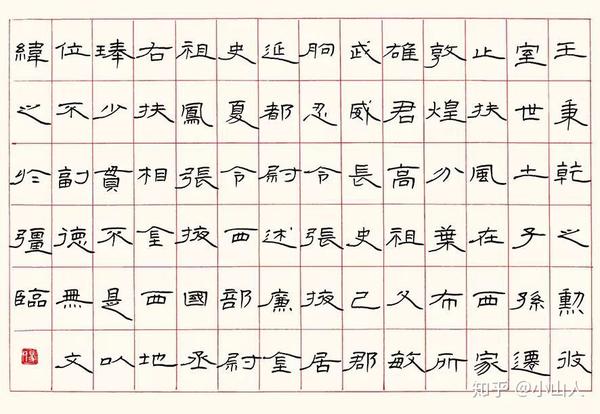 王秉乾之勳攸
室世土子孫遷
止扶風在西家
敦煌分葉布所
雄君高祖父敏
武威長史巴郡
朐忍令張掖居
延都尉述廉金
史夏令西部尉
祖鳳張掖國丞
右扶相金西地
琫少貫不是以
位不副德無文
緯之於彊臨
知乎 @小山人